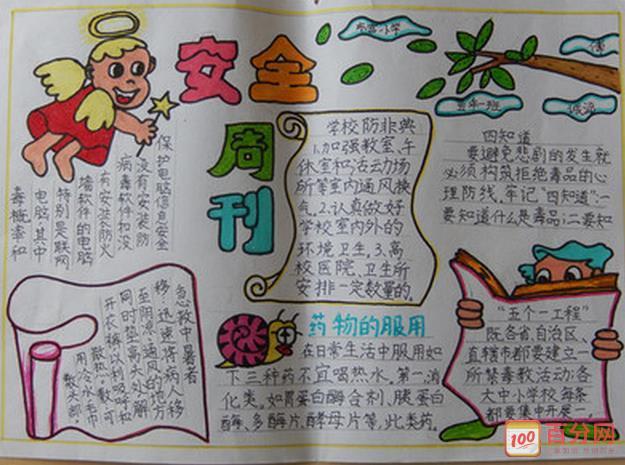 安全
周刊
小学
一班
保护电脑信息安全
没有安装防
病毒软件和没
有安装防火
墙软件的电脑
特别是联网
电脑,其中
毒概率和
学校防非典
1.加强教室、午
休室和活动场
所等室内通风换
气。2.认真做好
学校室内外的
环境卫生。3.高
校医院、卫生所
安排一定数量的。
四知道
要避免悲剧的发生就
必须构筑拒绝毒品的心
理防线。牢记“四知道”:一
要知道什么是毒品;二要知
急救中暑者
移:迅速将病人移
至阴凉、通风的地方
同时垫高头处,解
开衣裤以利呼吸和
散热。敷:可
用冷水毛巾
敷头部。
药物的服用
在日常生活中服用如
下三种药不宜喝热水。第一,消
化类。如胃蛋白酶合剂,胰蛋白
酶、多酶片、酵母片等,此类药。
“五个一工程”
院各省、自治区、
直辖市都要建立一
所禁毒教活动;各
大中小学校每条
都要集中开展一.
100 百分网